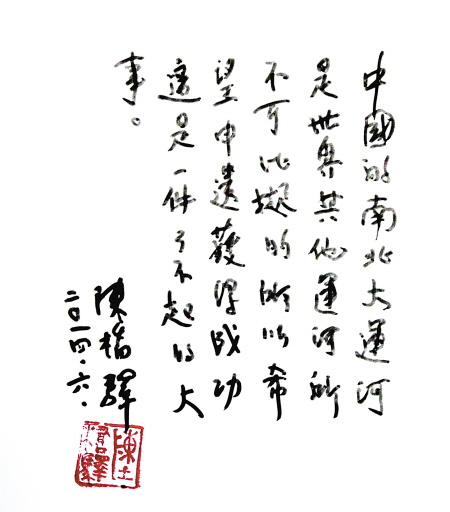 中國的南北大運河
是世界其他運河所
不可比擬的所以希
望申遺獲得成功
這是一件了不起的大
事。
陳橋驛
二〇一四.六.